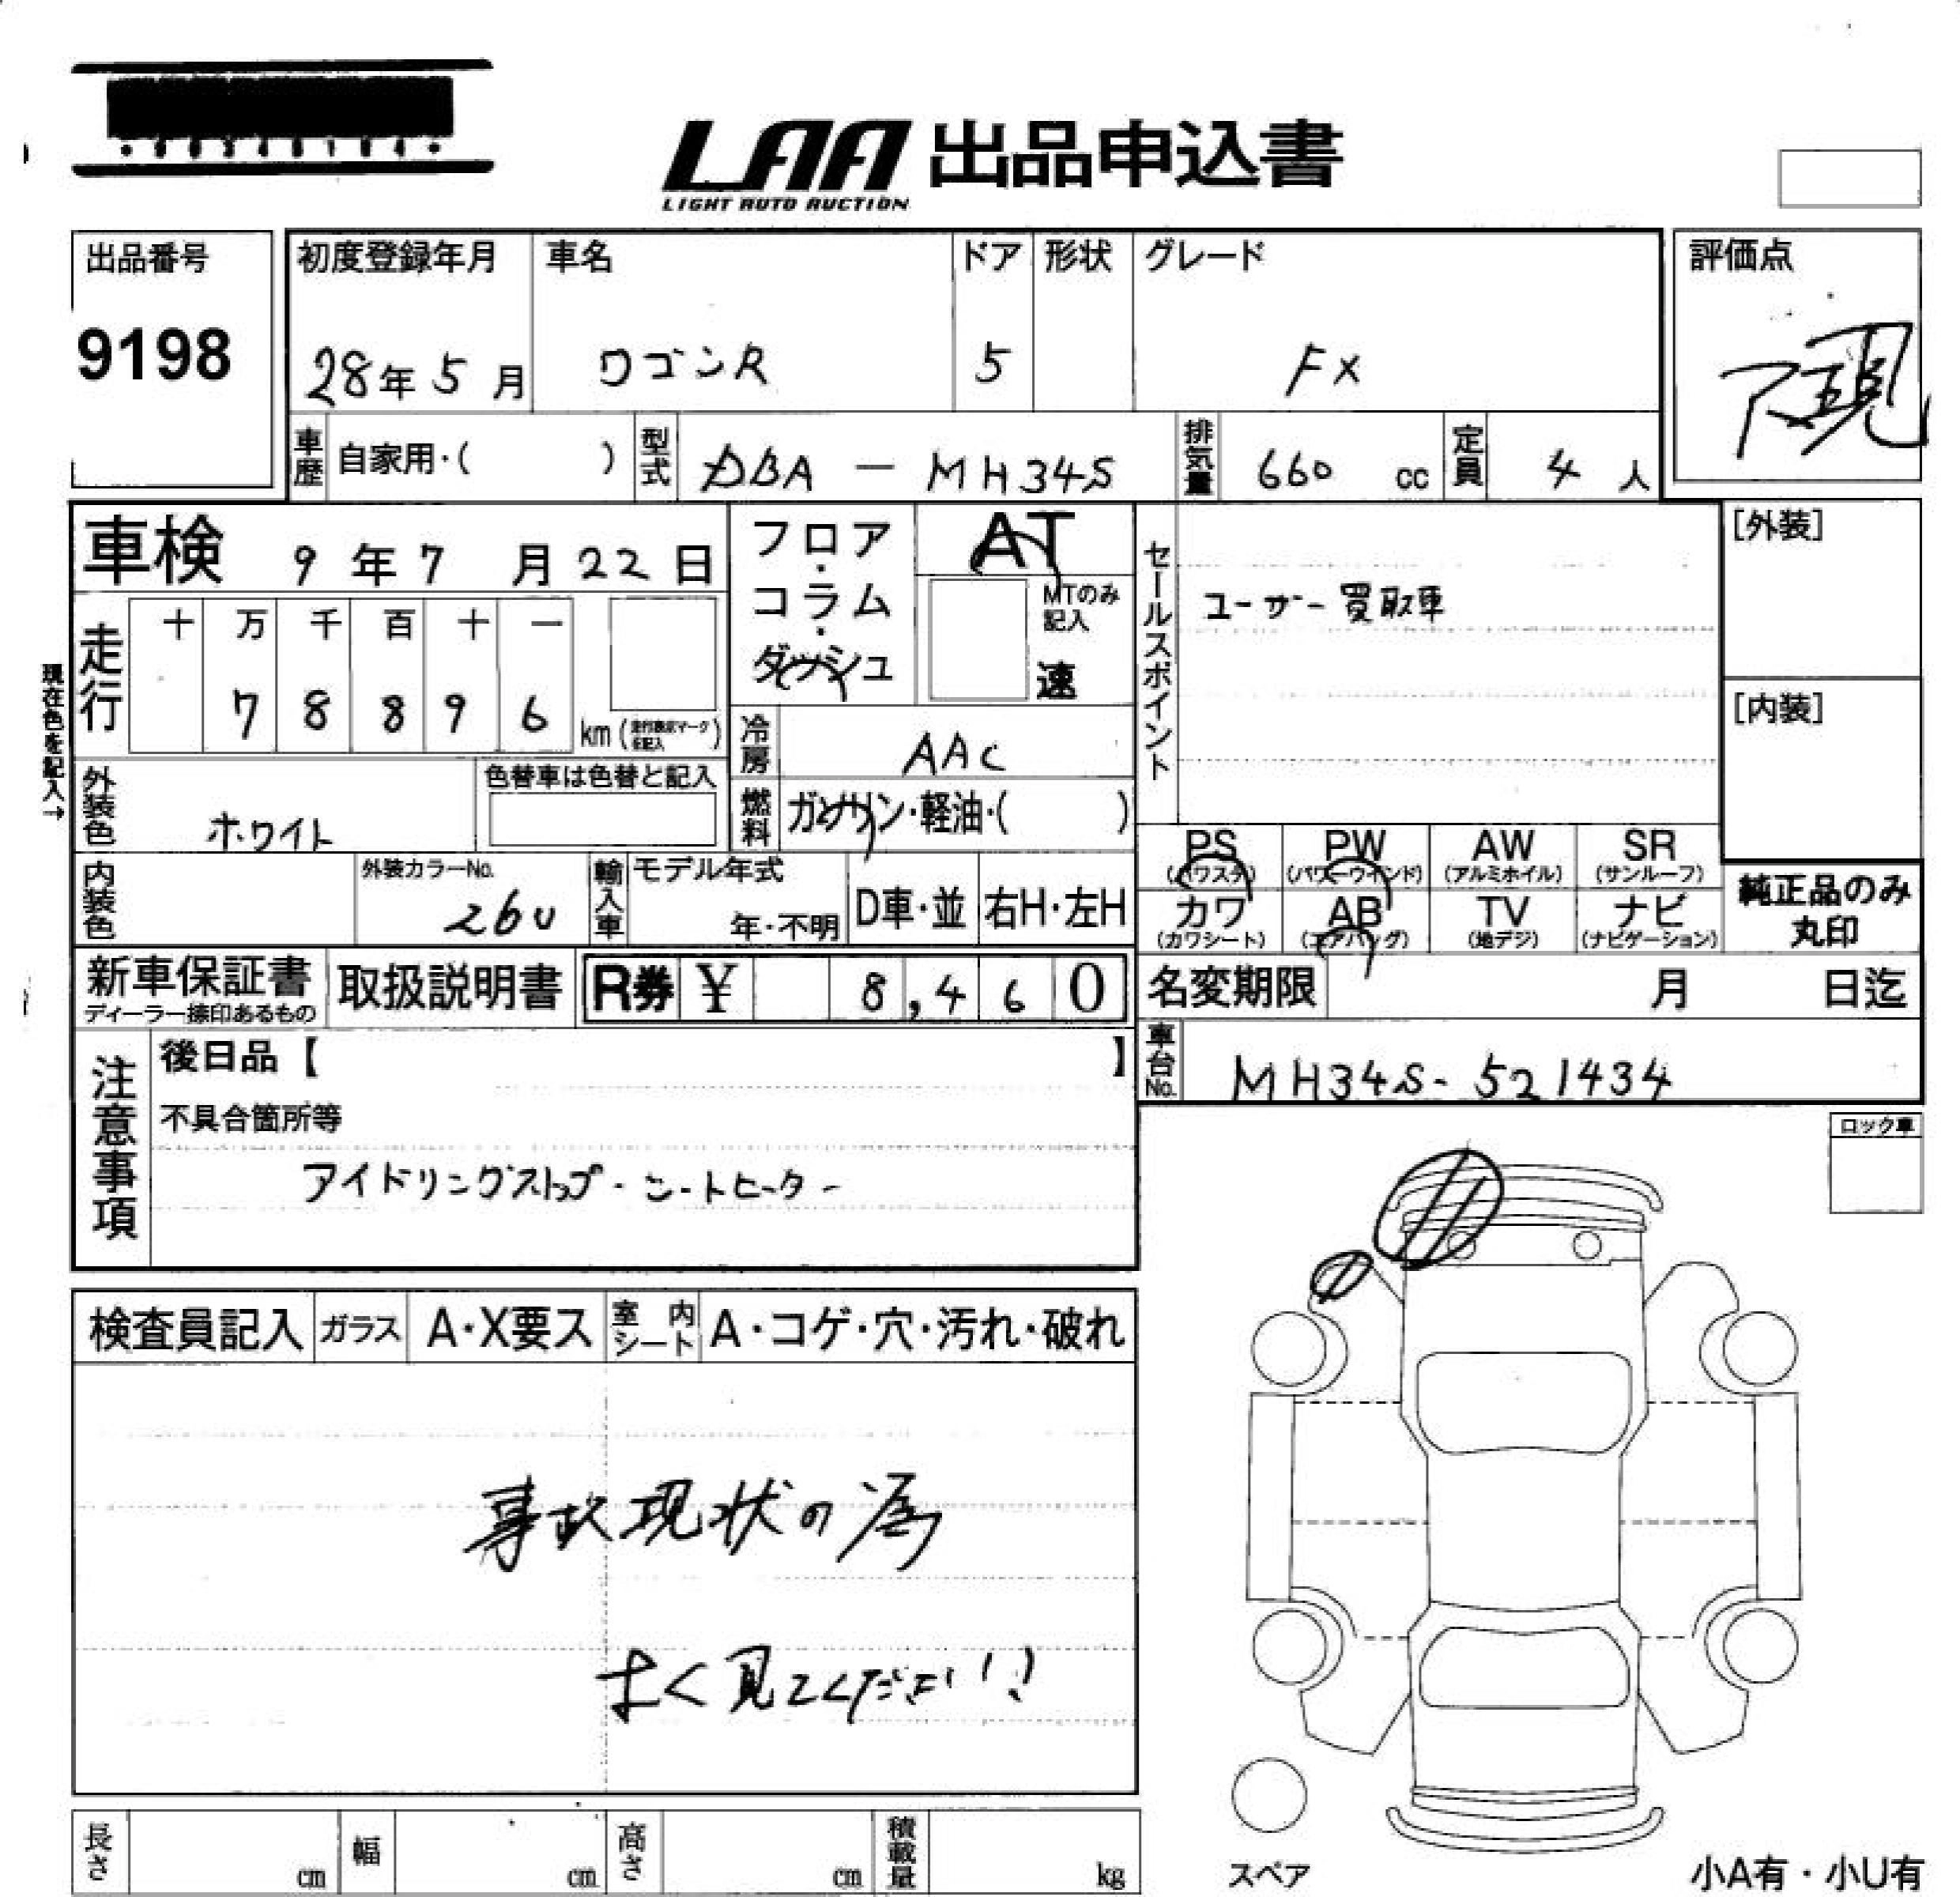 LAA 出品申込書
LIGHT AUTO AUCTION
出品番号
9198
初度登録年月
28年 5月
車名
ワゴンR
ドア
5
形状
グレード
FX
評価点
車歴 自家用・( )
型式 DBA - MH34S
排気量 660 cc
定員 4 人
車検 9年 7月 22日
フロア・コラム・ダッシュ
AT
MTのみ記入
速
走行
十 万 千 百 十 一
7 8 8 9 6 km
現在色を記入→
外装色 ホワイト
色替車は色替と記入
冷房 AAC
燃料 ガソリン・軽油・( )
内装色
外装カラーNo.
26U
輸入車
モデル年式
年・不明
D車・並
右H・左H
セールスポイント
ユーザー買取車
[外装]
[内装]
PS (パワステ)
PW (パワーウインド)
AW (アルミホイル)
SR (サンルーフ)
カワ (カワシート)
AB (エアバッグ)
TV (地デジ)
ナビ (ナビゲーション)
純正品のみ
丸印
新車保証書
ディーラー捺印あるもの
取扱説明書
R券 ¥ 8,460
名変期限 月 日迄
車台No. MH34S-521434
注意事項
後日品【 】
不具合箇所等
アイドリングストップ・シートヒーター
ロック車
検査員記入
ガラス A・X要ス
室内シート A・コゲ・穴・汚れ・破れ
事故現状の為
よく見てください!
長さ cm
幅 cm
高さ cm
積載量 kg
スペア
小A有・小U有